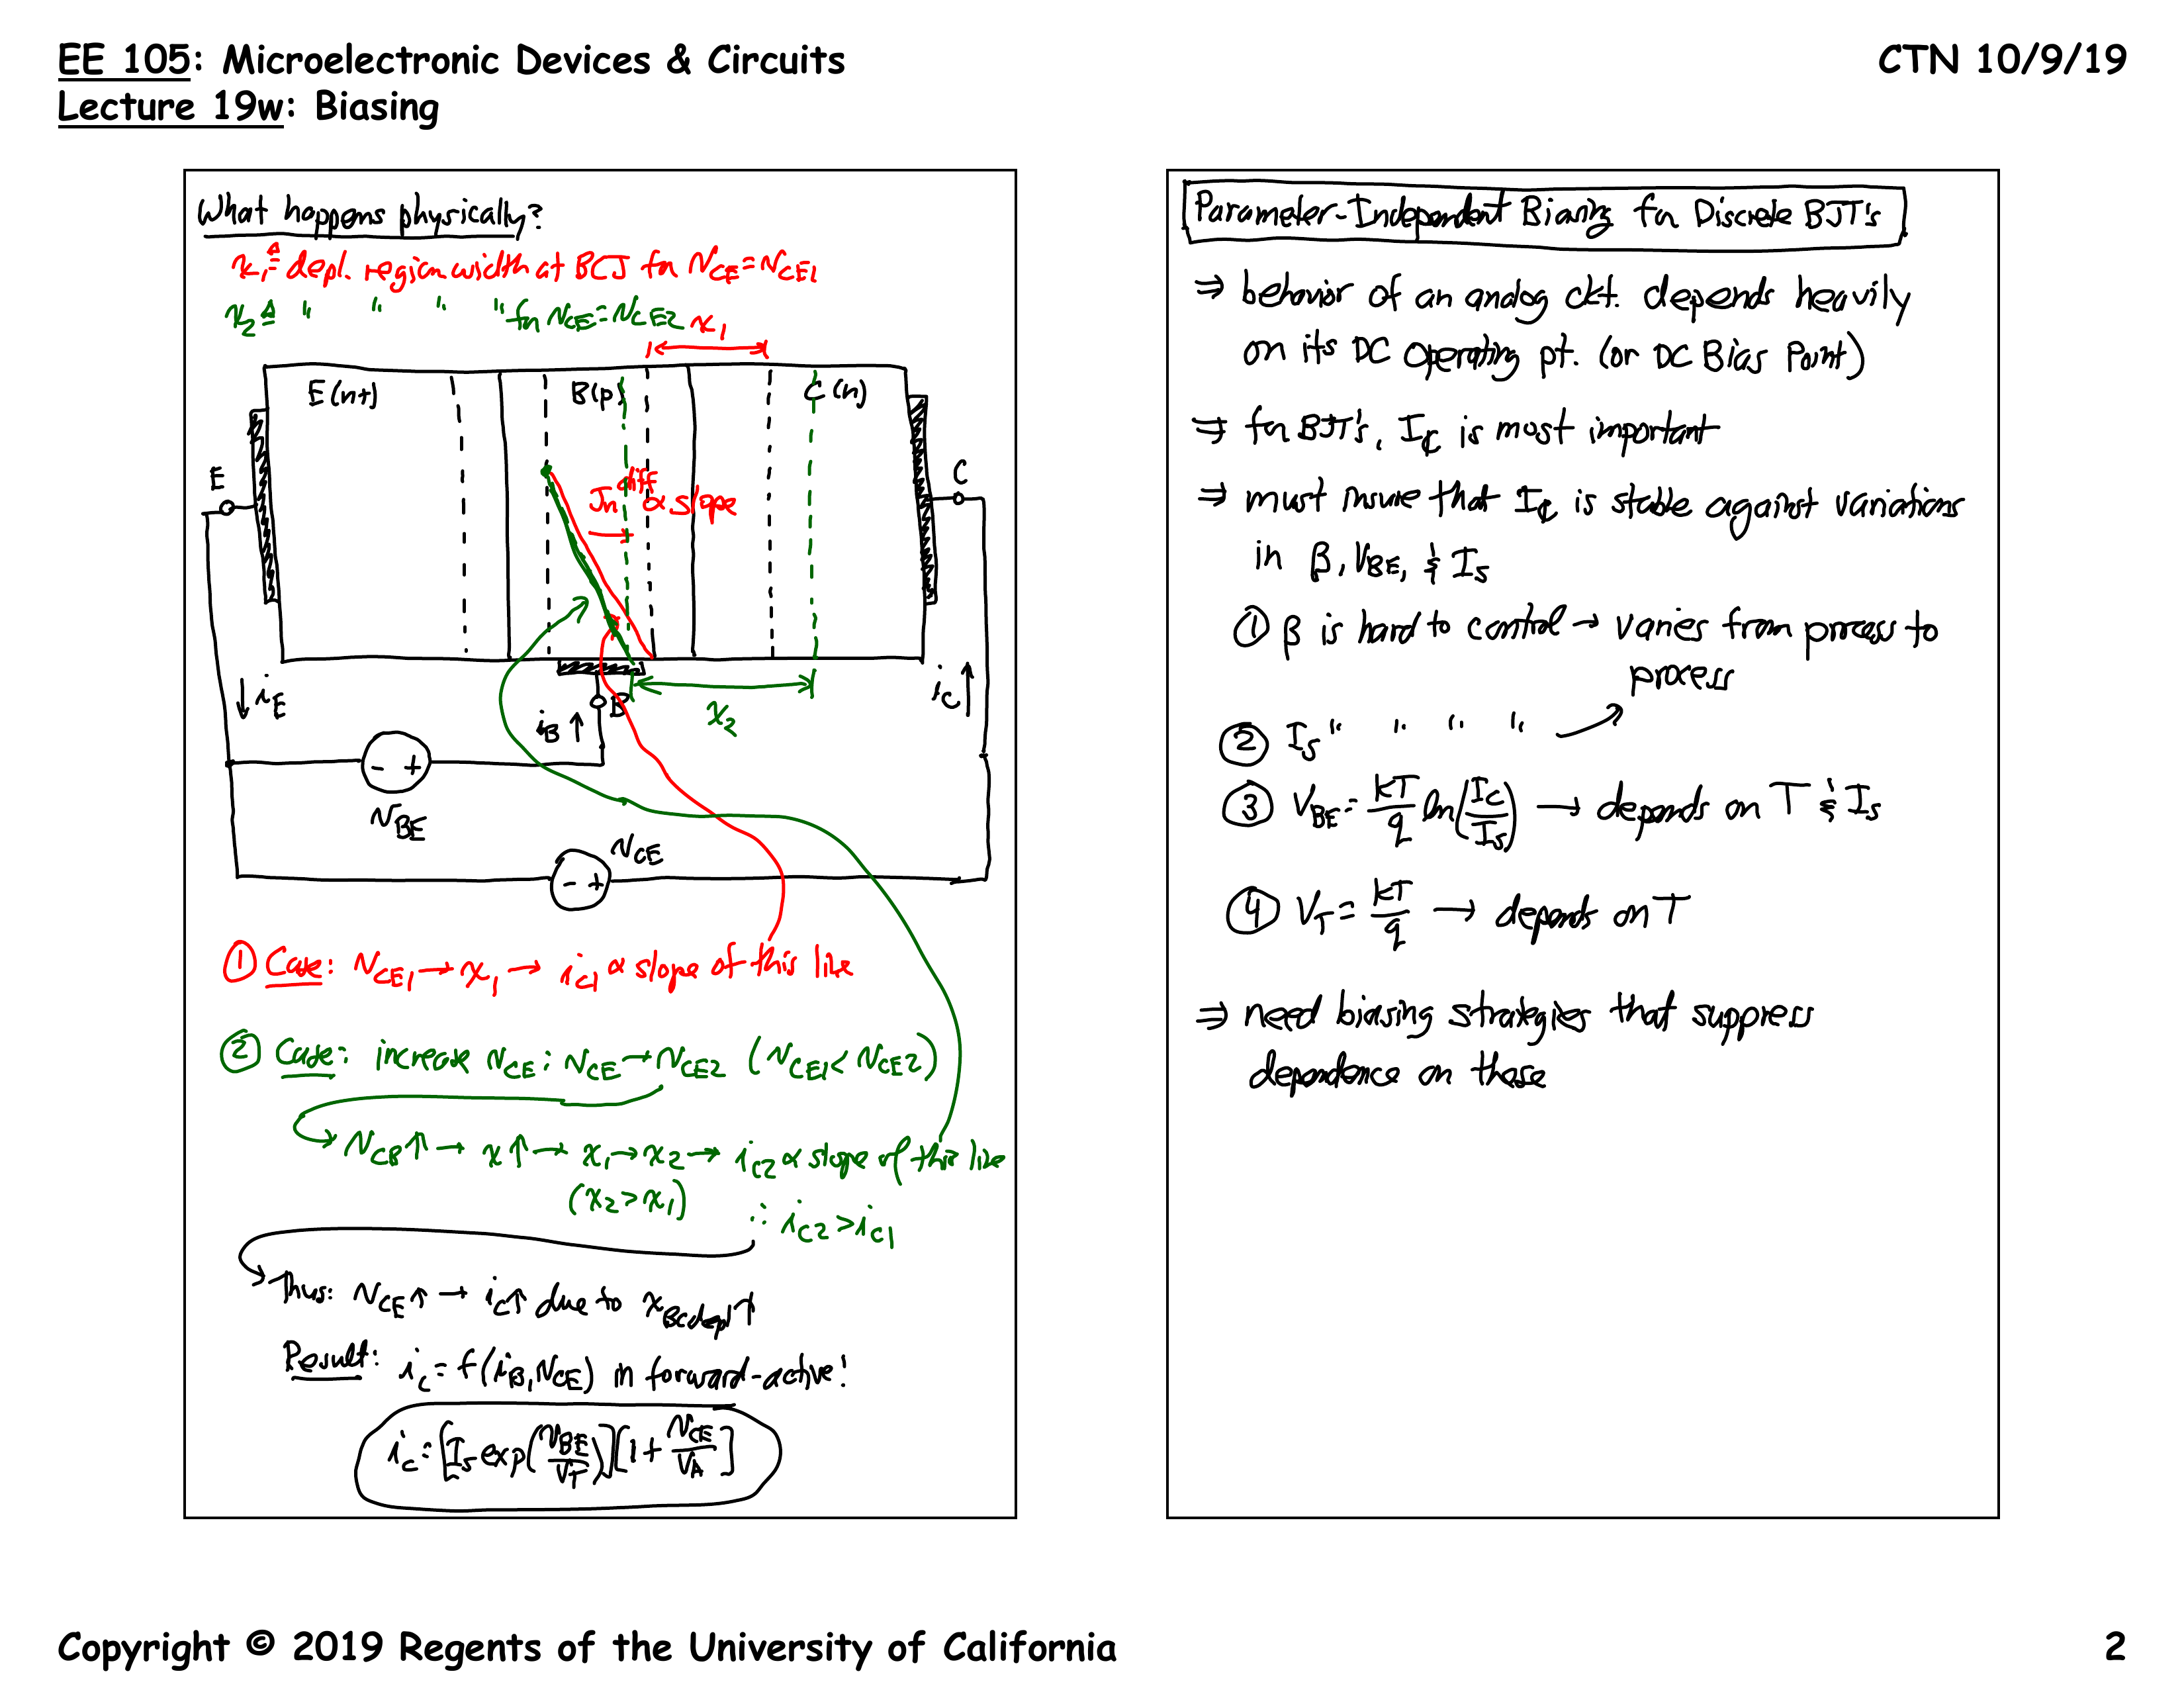 EE 105: Microelectronic Devices & Circuits
CTN 10/9/19
Lecture 19w: Biasing
What happens physically?
x₁ ≜ depl. region width at BCJ for v_CE = v_CE1
x₂ ≜ " " " " for v_CE = v_CE2
x₁
E(n+)
B(p)
C(n)
E
C
J_n^diff ∝ slope
B
i_E
i_B
i_C
x₂
- +
v_BE
v_CE
- +
① Case: v_CE1 → x₁ → i_C1 ∝ slope of this line
② Case: increase v_CE: v_CE → v_CE2 (v_CE1 < v_CE2)
v_CB↑ → x↑ → x₁→x₂ → i_C2 ∝ slope of this line
(x₂ > x₁)
∴ i_C2 > i_C1
Thus: v_CE↑ → i_C↑ due to x_BCdepl↑
Result: i_C = f(i_B, v_CE) in forward-active!
i_C = [I_S exp(v_BE/V_T)][1 + v_CE/V_A]
Parameter-Independent Biasing for Discrete BJT's
⇒ behavior of an analog ckt. depends heavily
on its DC operating pt. (or DC Bias Point)
⇒ for BJT's, I_C is most important
⇒ must insure that I_C is stable against variations
in β, V_BE, & I_S
① β is hard to control → varies from process to
process
② I_S " " " "
③ V_BE = kT/q ln(I_C/I_S) → depends on T & I_S
④ V_T = kT/q → depends on T
⇒ need biasing strategies that suppress
dependence on these
Copyright © 2019 Regents of the University of California
2